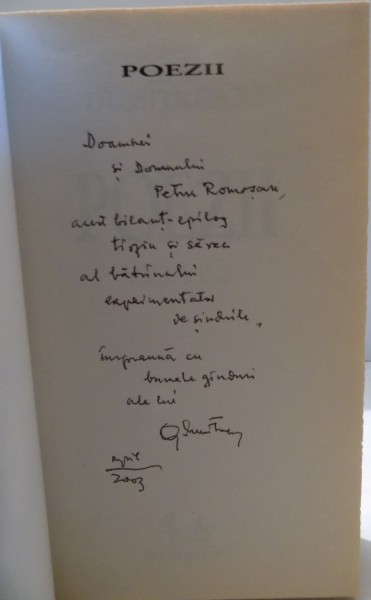 POEZII
Doamnei
și Domnului
Petru Romoșan,
acest bilanț-epilog
tîrziu și sărac
al bătrînului
experimentator
de
împreună cu
bunele gînduri
ale lui
April
2003